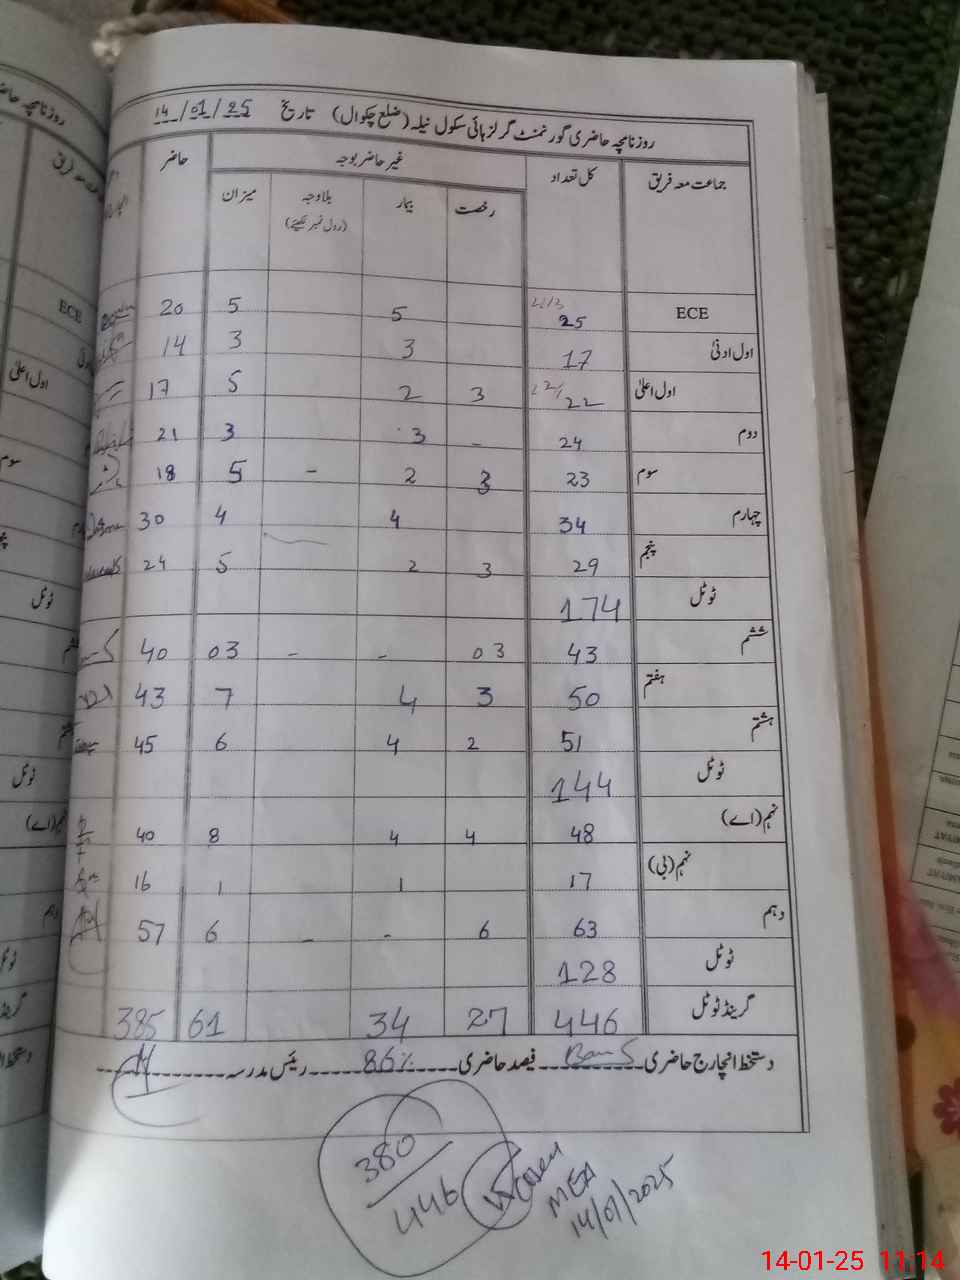 روزنامچہ حاضری گورنمنٹ گرلز ہائی سکول نیلہ (ضلع چکوال) تاریخ 14/01/25
جماعت معہ فریق کل تعداد غیر حاضر بوجہ حاضر
رخصت بیمار بلاوجہ (رول نمبر لکھیئے) میزان
ECE 25 5 5 20
اول ادنیٰ 17 3 3 14
اول اعلیٰ 22 3 2 5 17
دوم 24 - 3 3 21
سوم 23 3 2 - 5 18
چہارم 34 4 4 30
پنجم 29 3 2 5 24
ٹوٹل 174
ششم 43 03 - - 03 40
ہفتم 50 3 4 7 43
ہشتم 51 2 4 6 45
ٹوٹل 144
نہم (اے) 48 4 4 8 40
نہم (بی) 17 1 1 16
دہم 63 6 - - 6 57
ٹوٹل 128
گرینڈ ٹوٹل 446 27 34 61 385
دستخط انچارج حاضری فیصد حاضری 86% رئیس مدرسہ
380
446
MEA
14/01/2025
14-01-25 11:14